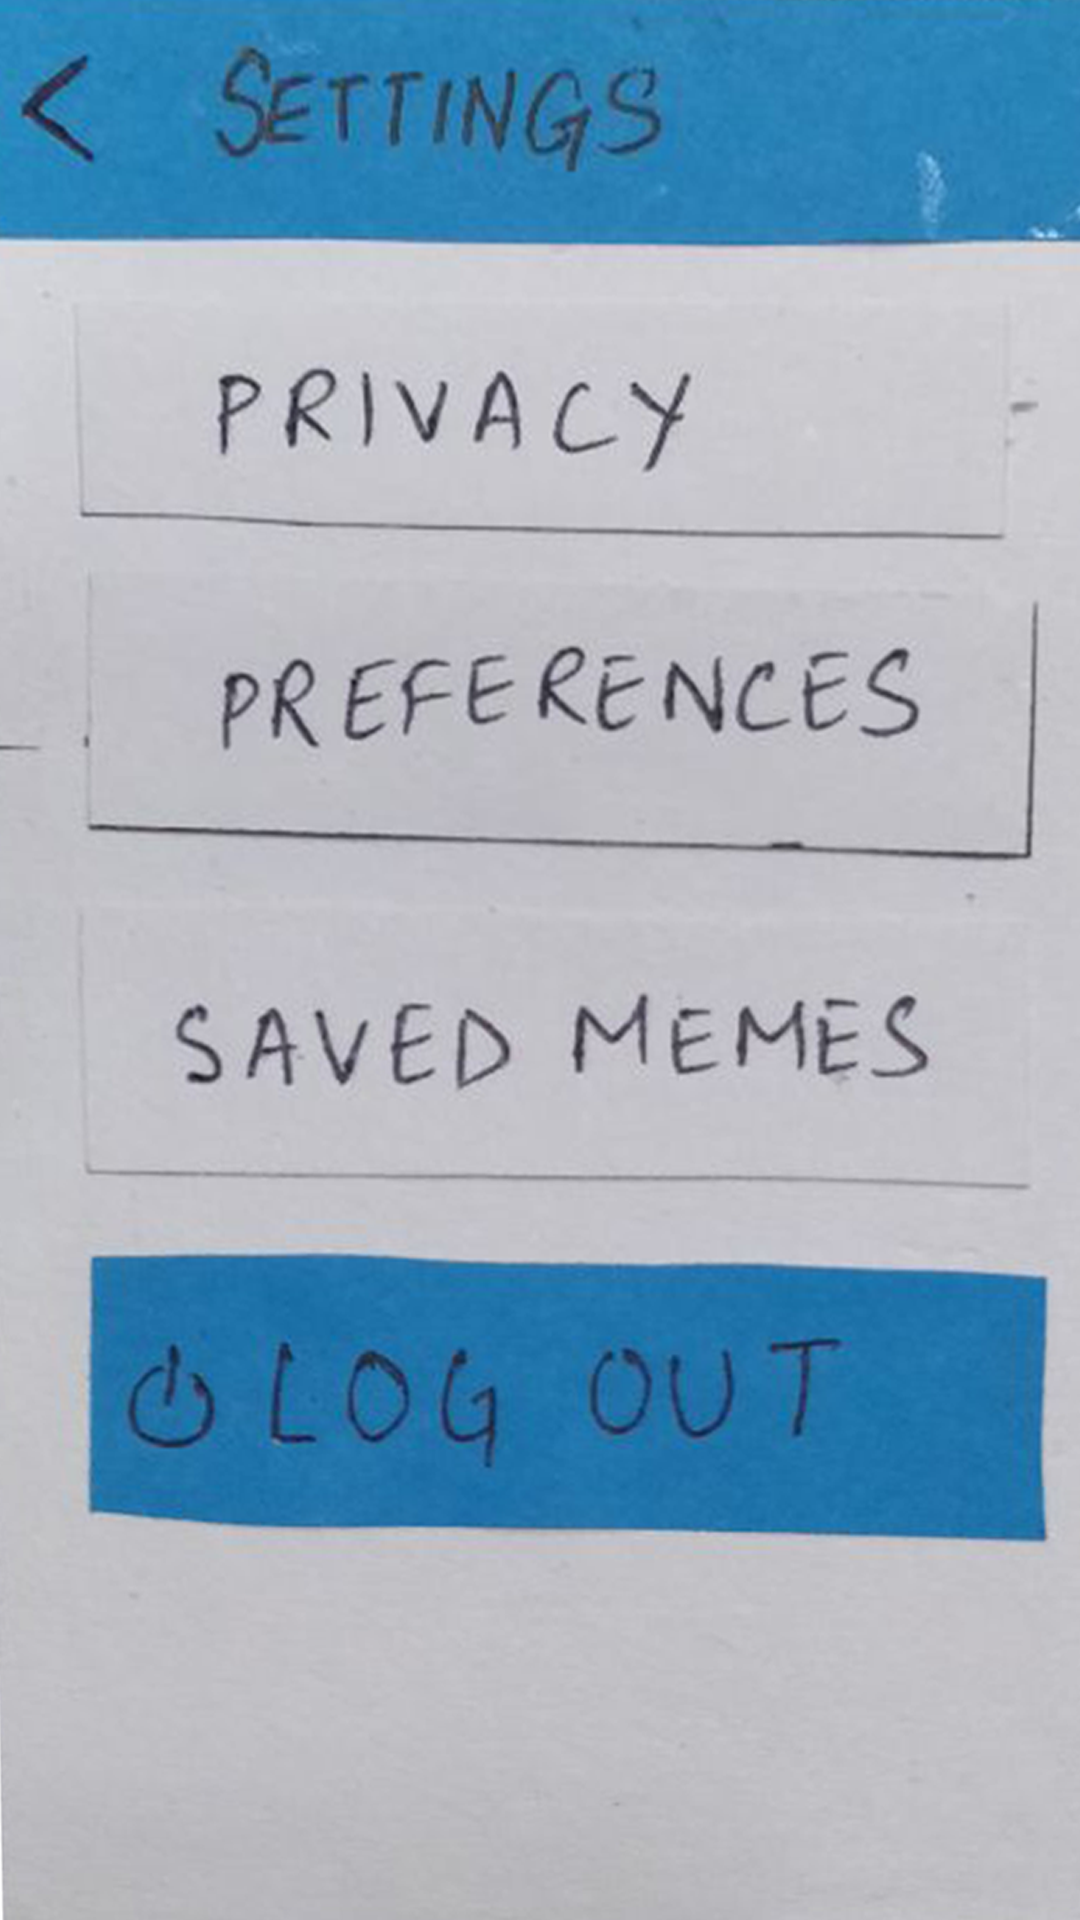 < SETTINGS
PRIVACY
PREFERENCES
SAVED MEMES
LOG OUT